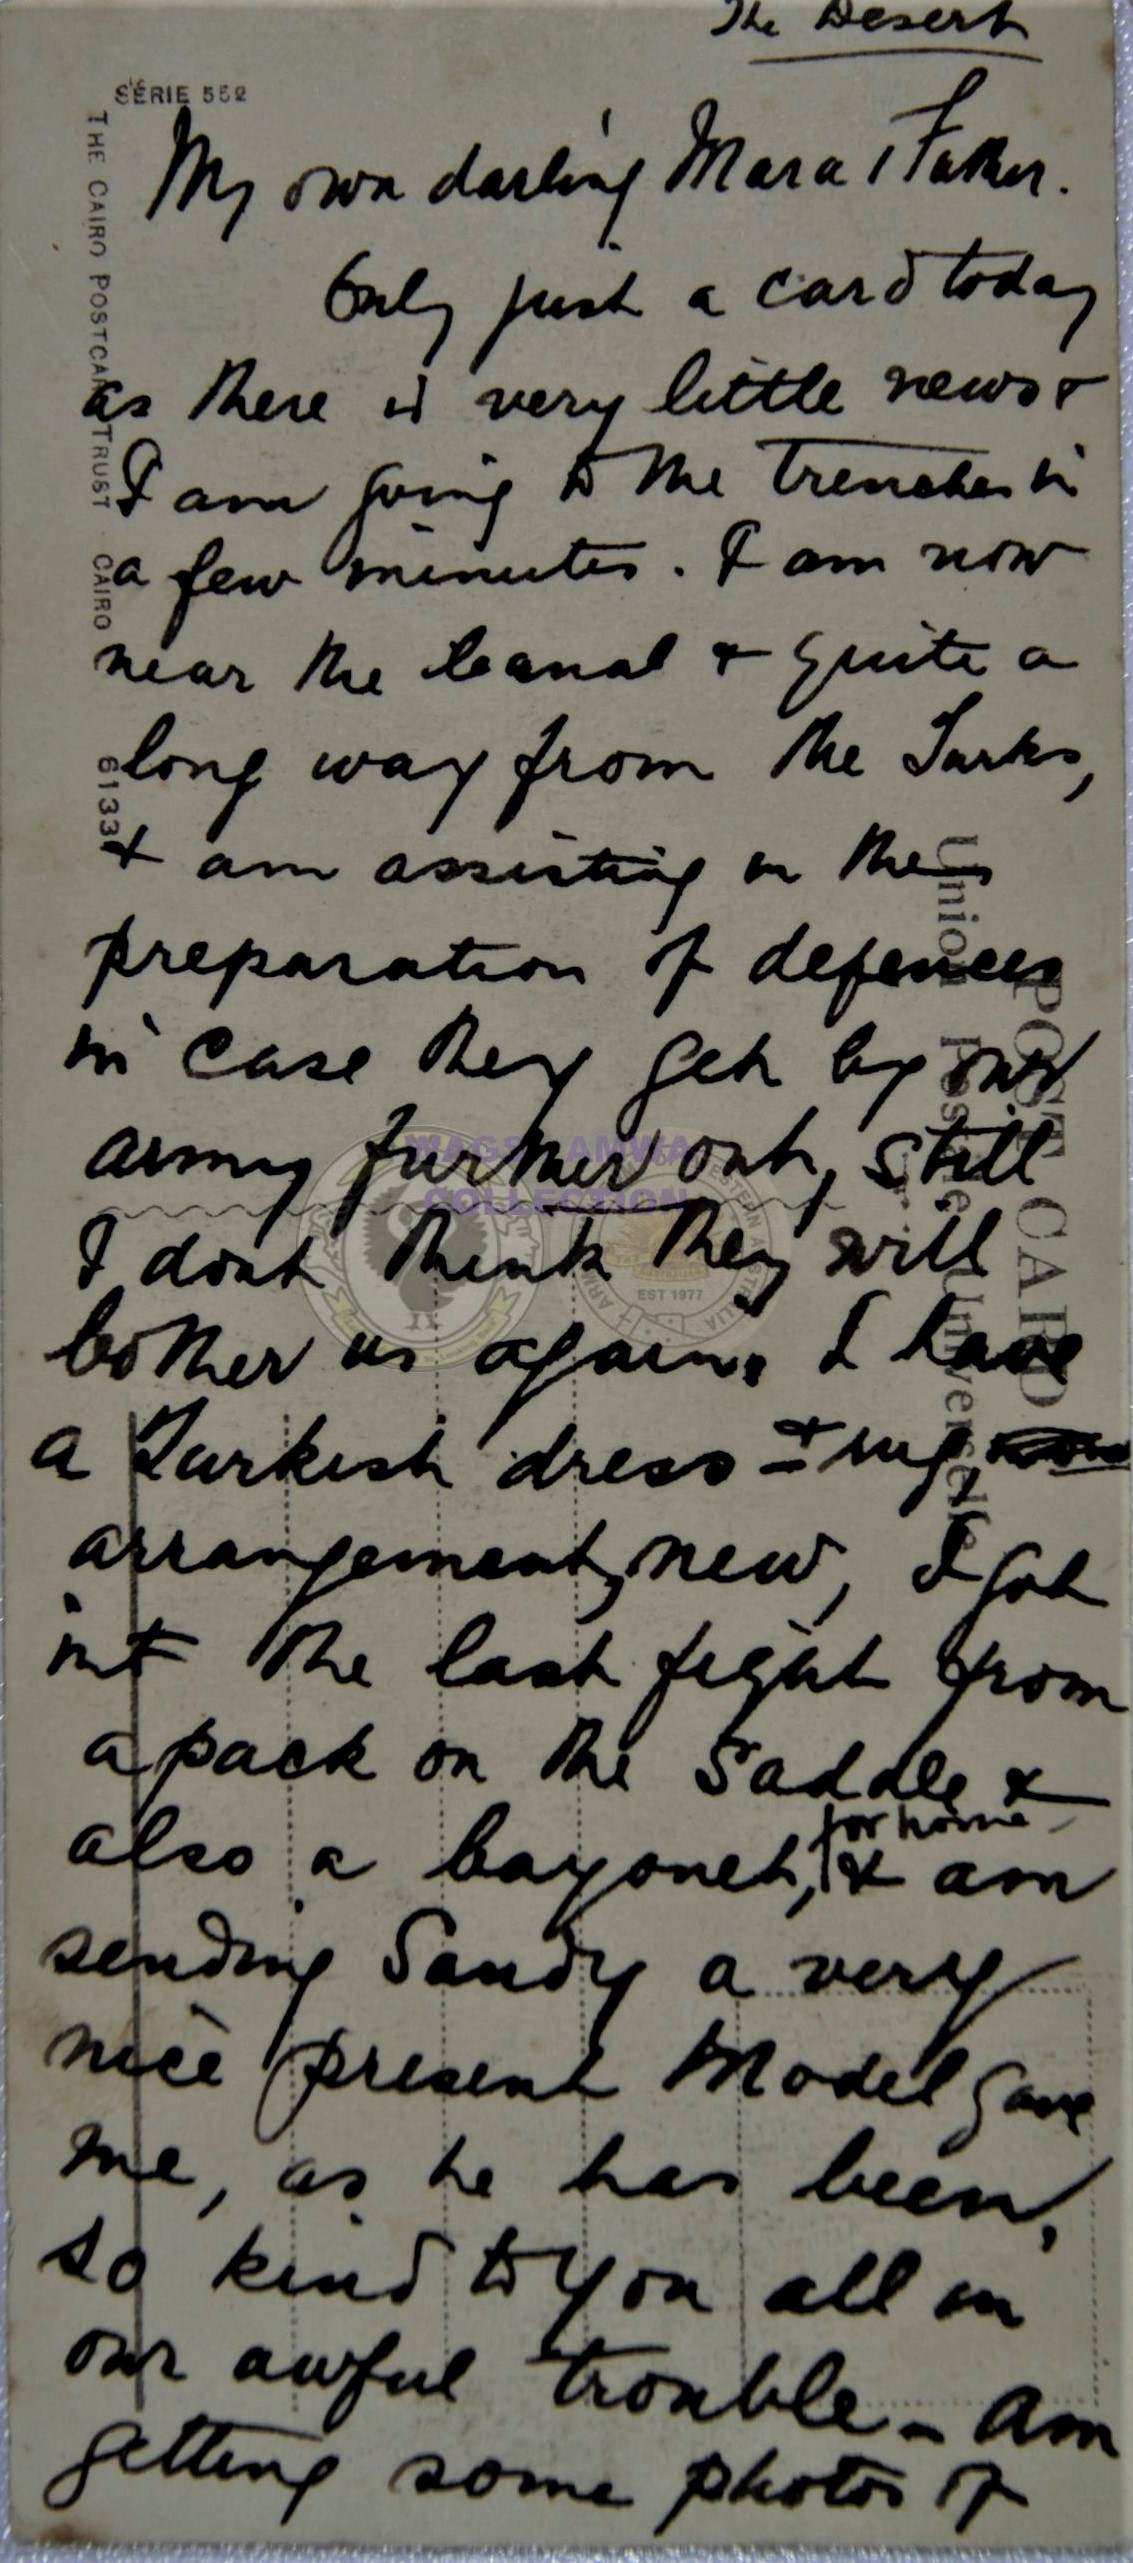 The Desert
SÉRIE 552
THE CAIRO POSTCARD TRUST CAIRO
6133
My own darling Mara & Father.
Only just a card today
as there is very little news &
I am going to the trenches in
a few minutes. I am now
near the Canal & quite a
long way from the Turks,
& am assisting in the
preparation of defences
in case they get by our
army further out, still
I dont think they will
bother us again. I have
a Turkish dress & rug
arrangement, new, I got
in the last fight from
a pack on the saddle &
also a bayonet, for home & am
sending Sandy a very
nice present Model gave
me, as he has been,
so kind to you all in
our awful trouble - am
getting some photos of
POST CARD
Union Postale Universelle
WAGS AMWA
COLLECTION
EST 1977